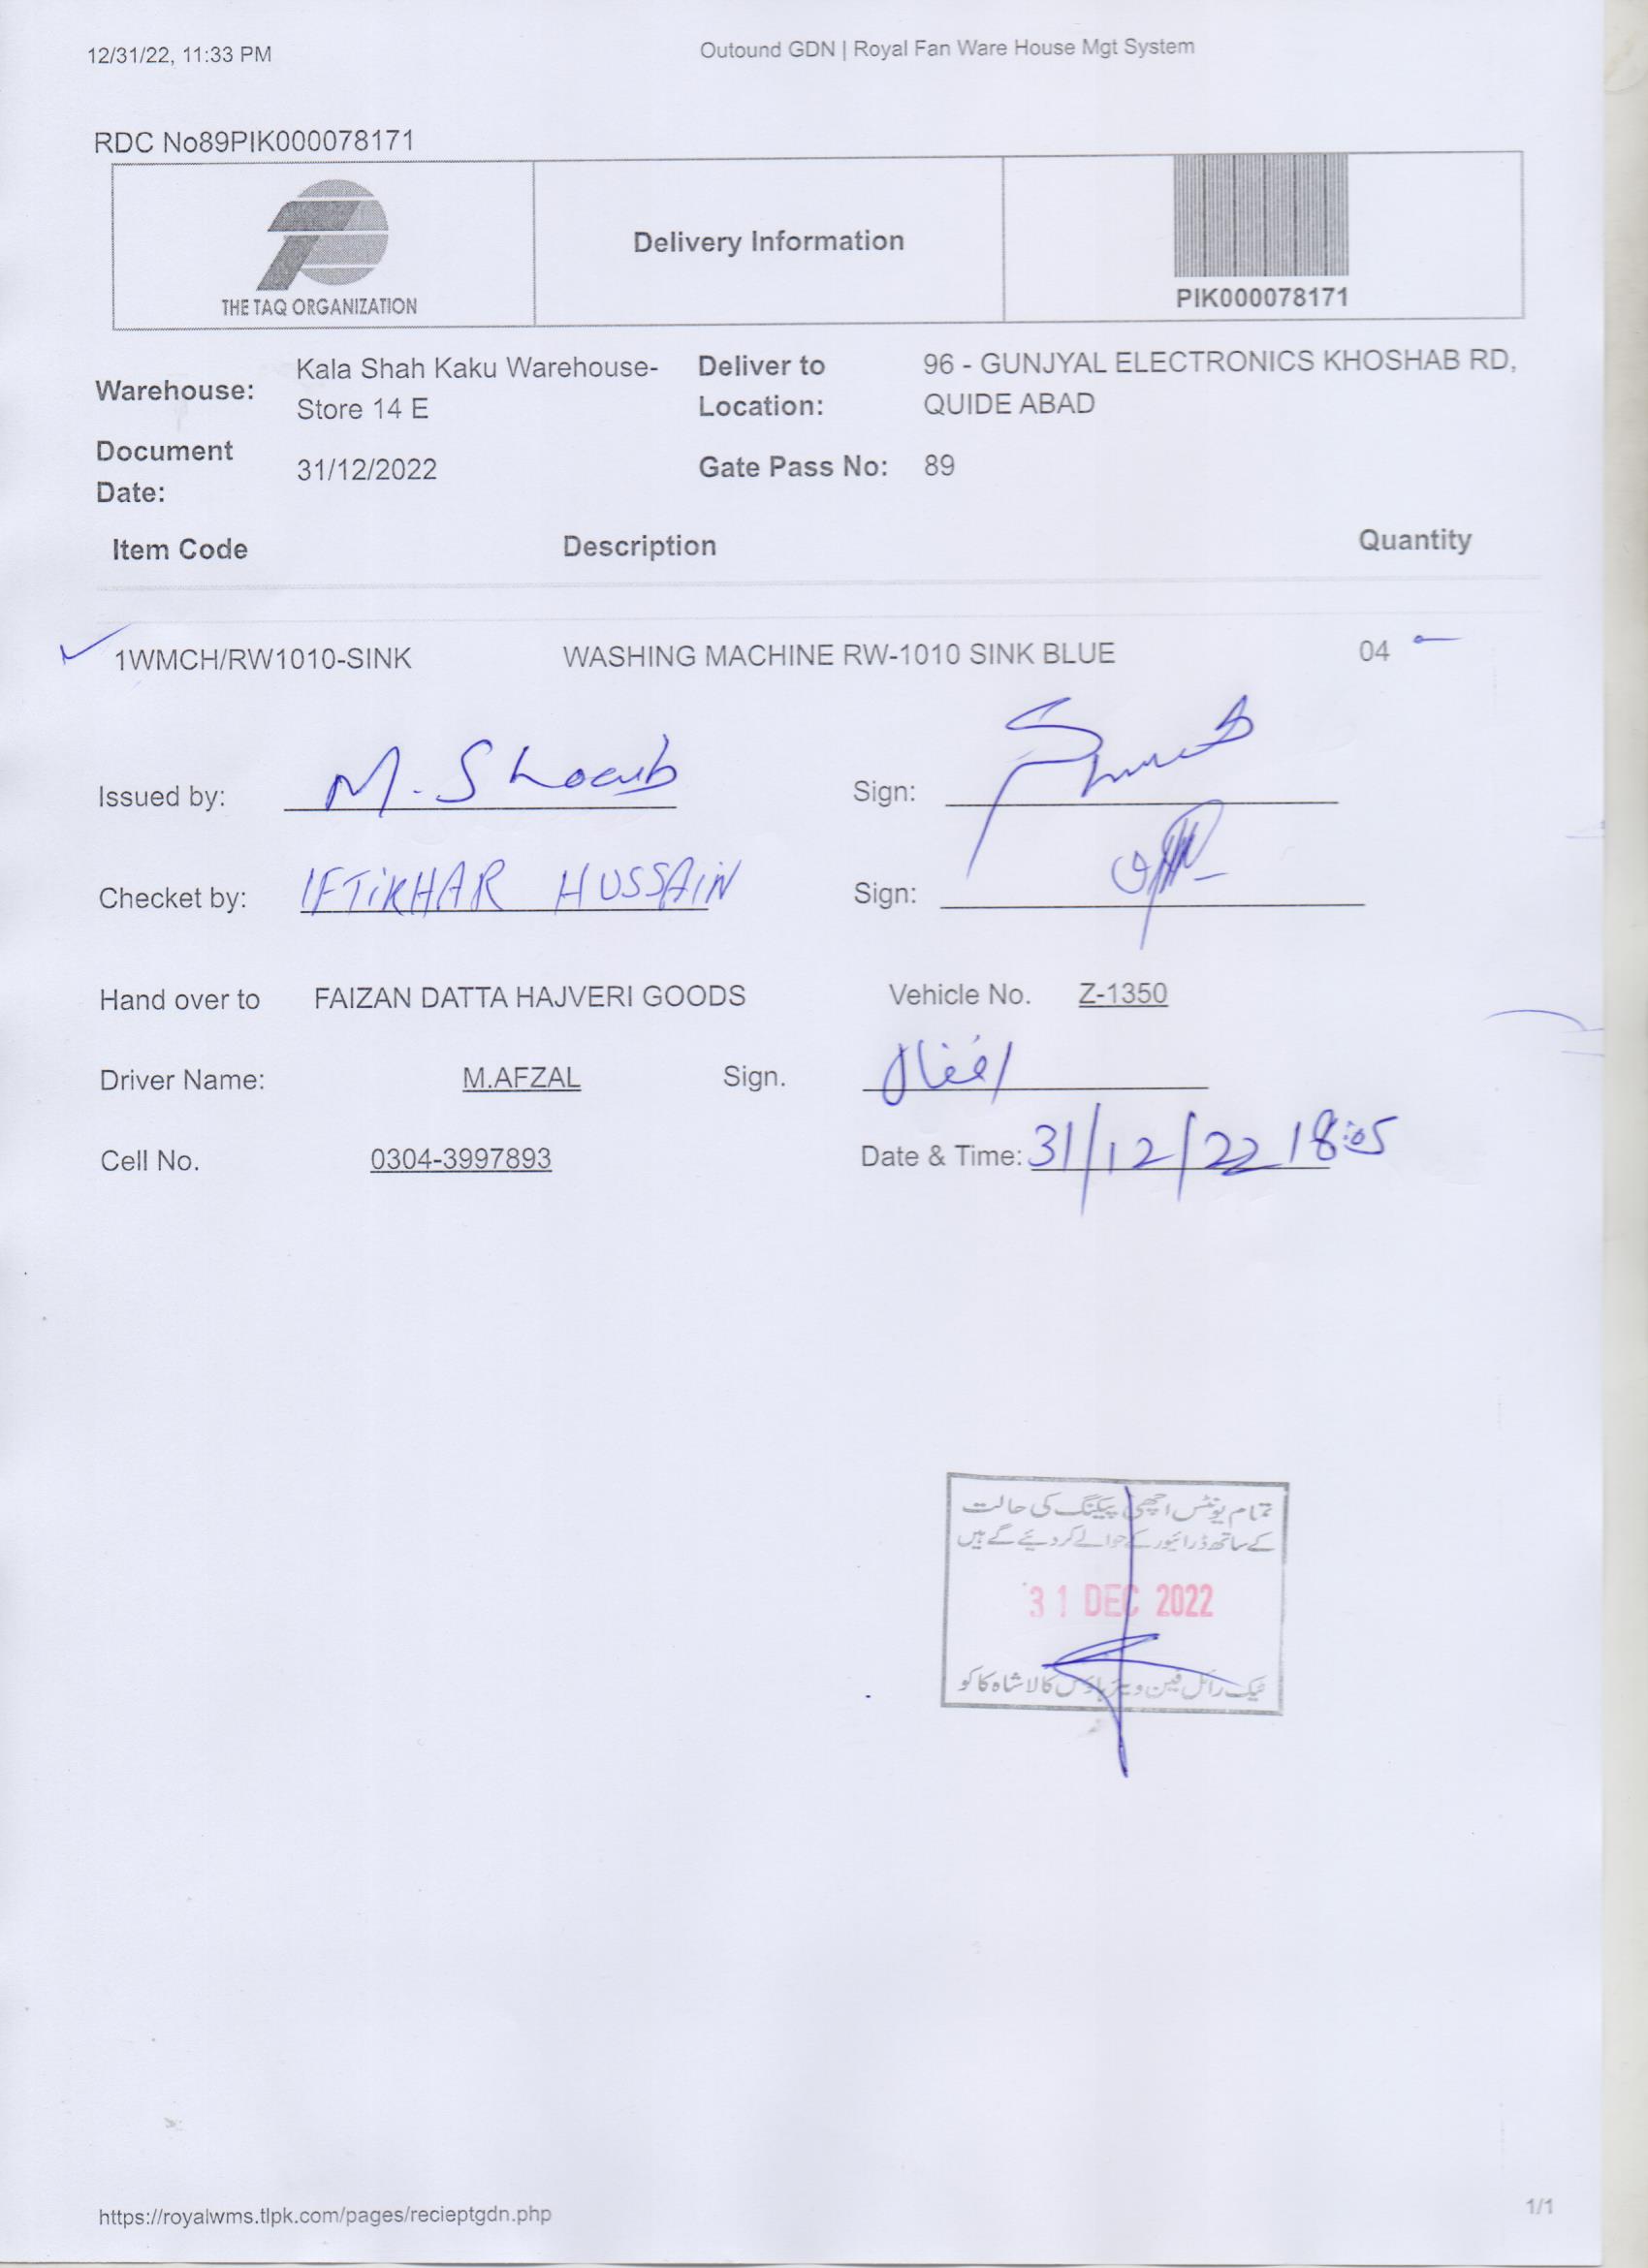 12/31/22, 11:33 PM
Outound GDN | Royal Fan Ware House Mgt System
RDC No89PIK000078171
THE TAQ ORGANIZATION
Delivery Information
PIK000078171
Warehouse: Kala Shah Kaku Warehouse-
Store 14 E
Deliver to
Location:
96 - GUNJYAL ELECTRONICS KHOSHAB RD,
QUIDE ABAD
Document
Date:
31/12/2022
Gate Pass No: 89
Item Code Description Quantity
1WMCH/RW1010-SINK WASHING MACHINE RW-1010 SINK BLUE 04
Issued by: M. Shoaib Sign:
Checket by: IFTIKHAR HUSSAIN Sign:
Hand over to FAIZAN DATTA HAJVERI GOODS Vehicle No. Z-1350
Driver Name: M.AFZAL Sign. افضل
Cell No. 0304-3997893 Date & Time: 31/12/22 18:05
تمام یونٹس اچھی پیکنگ کی حالت
کے ساتھ ڈرائیور کے حوالے کر دیئے گے ہیں
31 DEC 2022
ٹیک رائل فین ویئر ہاؤس کالا شاہ کاکو
https://royalwms.tlpk.com/pages/recieptgdn.php
1/1